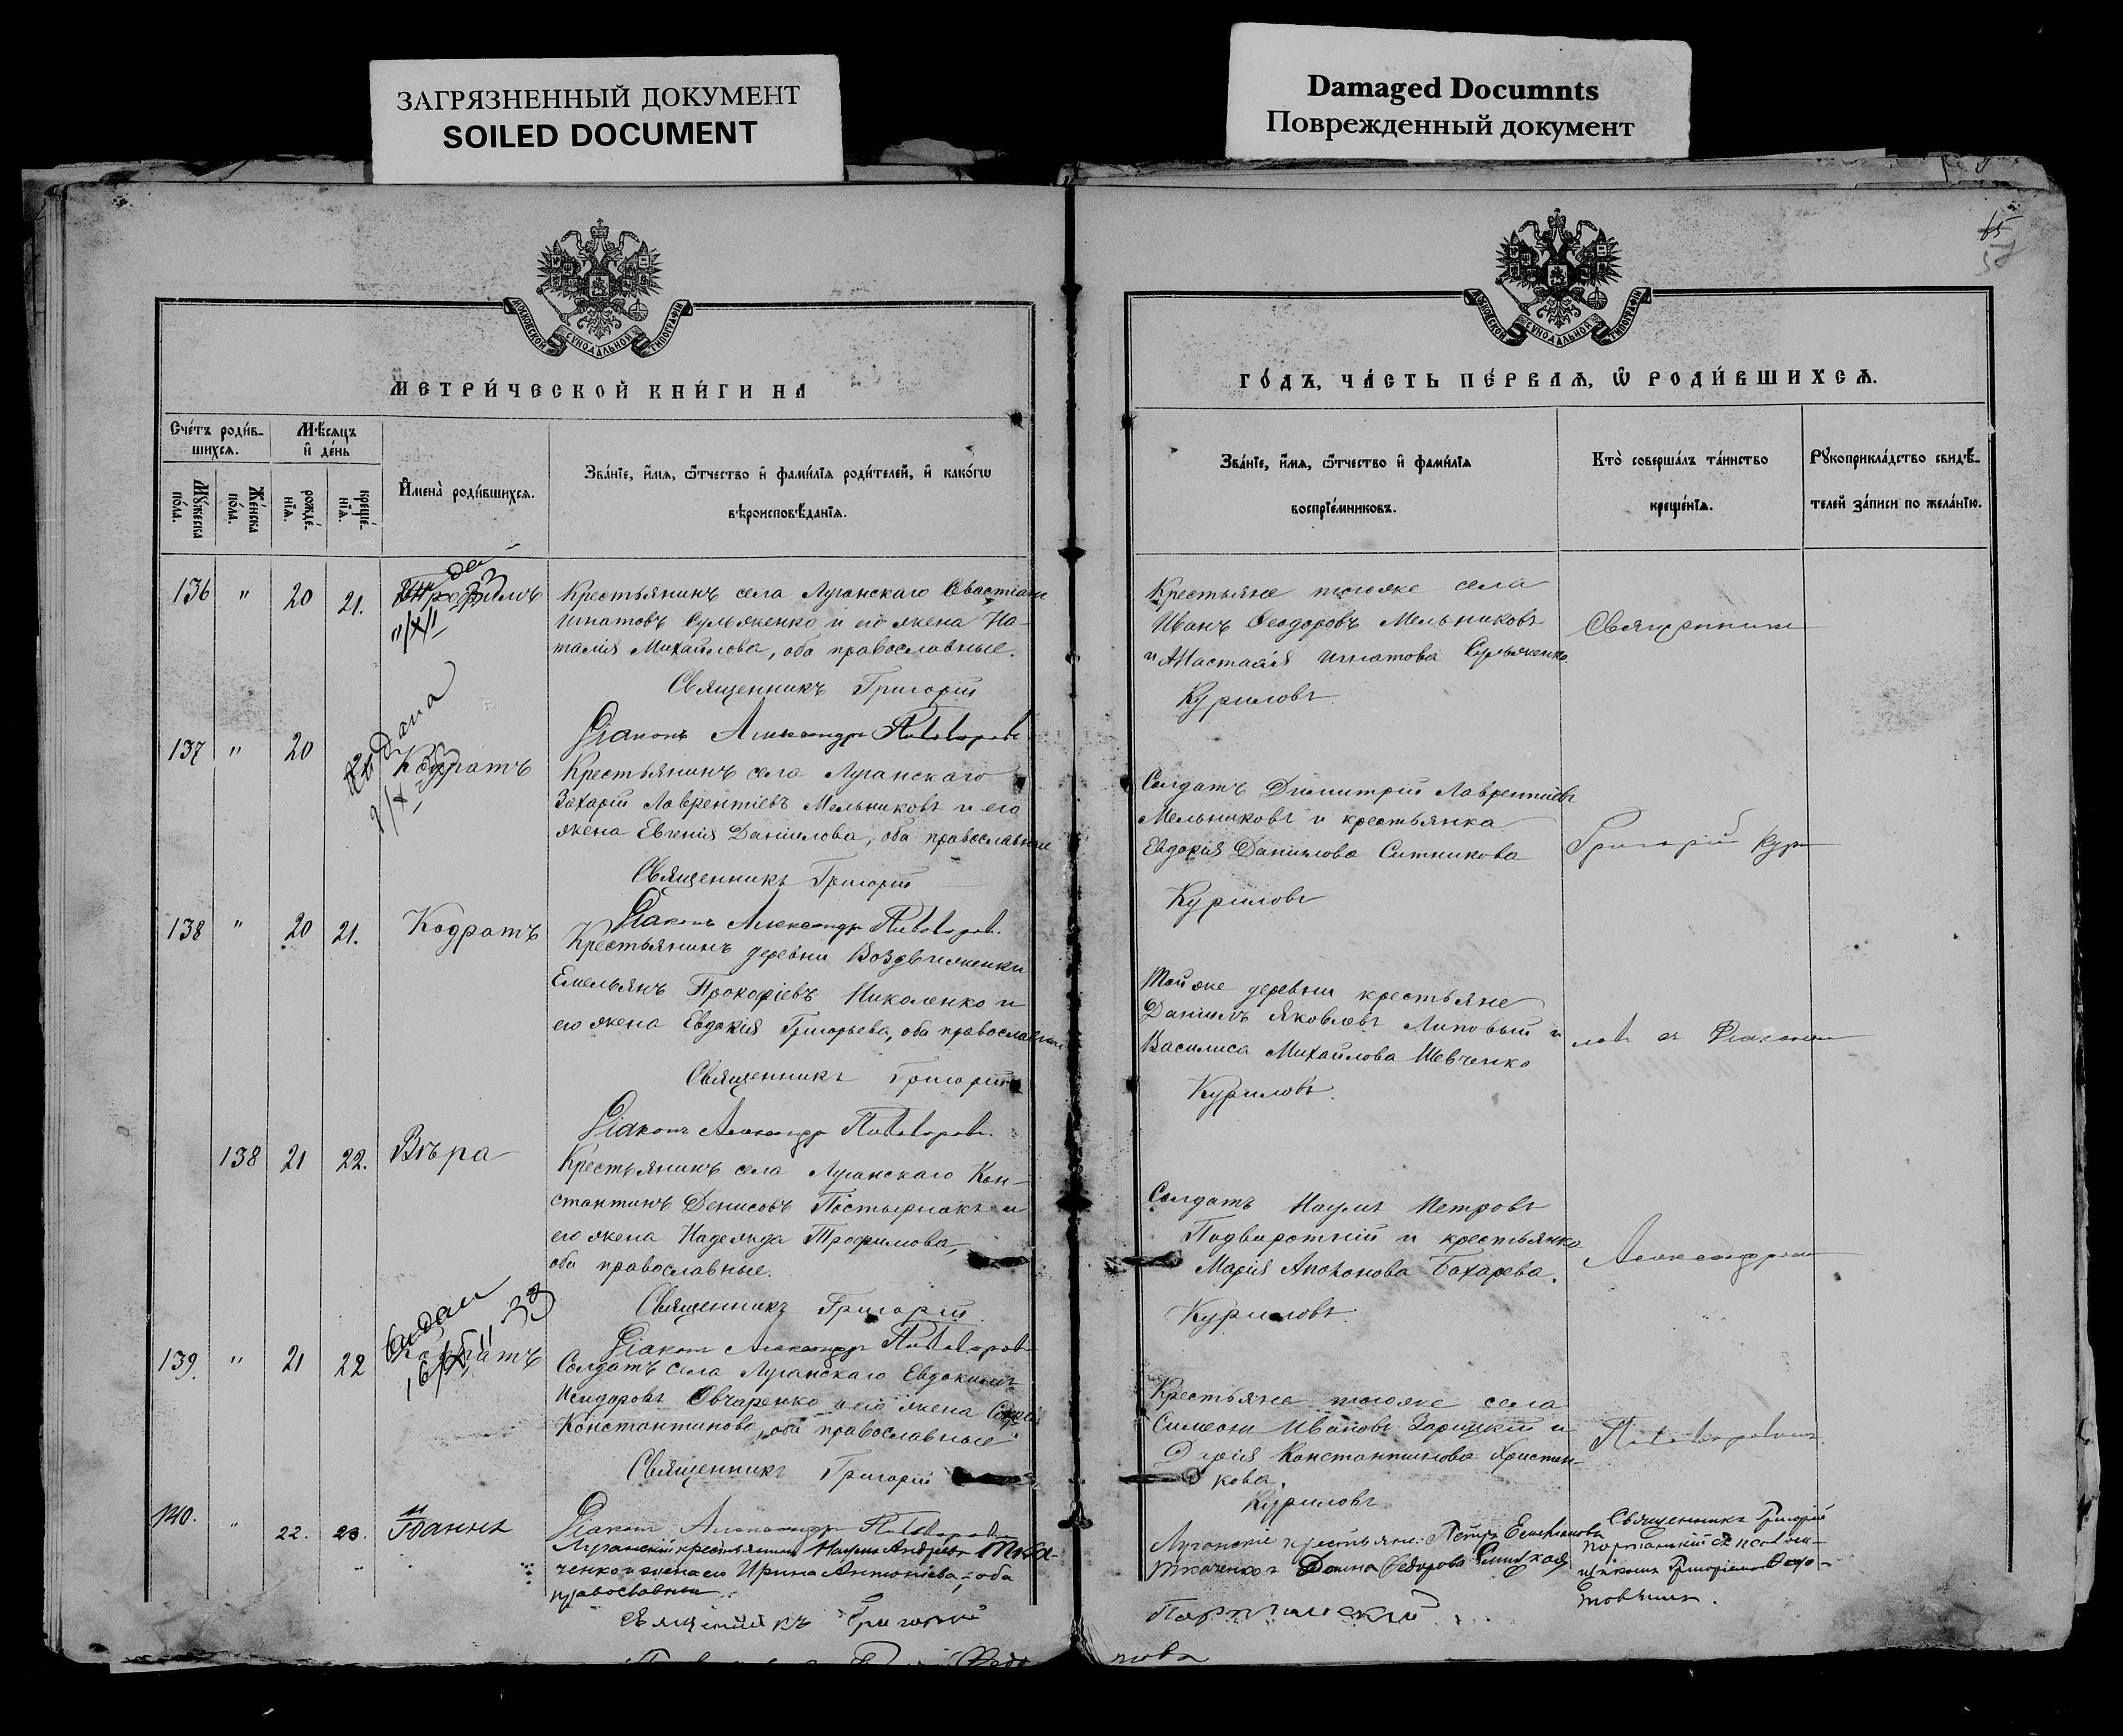 ЗАГРЯЗНЕННЫЙ ДОКУМЕНТ
SOILED DOCUMENT
Damaged Documnts
Поврежденный документ
65
МОСКОВСКОЙ СУНОДАЛЬНОЙ ТИПОГРАФІИ
МЕТРИ́ЧЕСКОЙ КНИ́ГИ НА
Сче́тъ роди́в-
шихсѧ.
Мѣ́сѧцъ
и҆ де́нь
Мꙋ́жеска
по́ла.
Же́нска
по́ла.
рожде́-
нїѧ.
креще́-
нїѧ.
И҆мена̀ роди́вшихсѧ.
Зва́нїе, и҆́мѧ, ѻ҆́тчество и҆ фами́лїѧ роди́телей, и҆ како́гѡ
вѣроисповѣ́данїѧ.
136 " 20 21.
Крестьянинъ села Луганскаго Севастіанъ
Игнатовъ Сульженко и его жена На-
талія Михайлова, оба православные.
Священникъ Григорій
Діаконъ Александръ Пивоваровъ
137 " 20 Кодратъ
Крестьянинъ села Луганскаго
Захарій Лаврентіевъ Мельниковъ и его
жена Евгенія Даніилова, оба православные
Священникъ Григорій
Діаконъ Александръ Пивоваровъ.
138 " 20 21. Кодратъ
Крестьянинъ деревни Воздвиженки
Емельянъ Прокофіевъ Николенко и
его жена Евдокія Григорьева, оба православные
Священникъ Григорій
Діаконъ Александръ Пивоваровъ.
138 21 22. Вѣра
Крестьянинъ села Луганскаго Кон-
стантинъ Денисовъ и
его жена Надежда Трофимова,
оба православные.
Священникъ Григорій
Діаконъ Александръ Пивоваровъ
139. " 21 22 Кодратъ
Солдатъ села Луганскаго Евдокимъ
Исидоровъ Овчаренко и его жена Софія
Константинова, оба православные
Священникъ Григорій
Діаконъ Александръ Пивоваровъ
140. " 22. 23. Іоаннъ
Луганскій крестьянинъ Наумъ Андреевъ Тка-
ченко и жена его Ирина Антоніева, оба
православные
Священникъ Григорій
МОСКОВСКОЙ СУНОДАЛЬНОЙ ТИПОГРАФІИ
ГО́ДЪ, ЧА́СТЬ ПЕ́РВАѦ, Ѡ҆ РОДИ́ВШИХСѦ.
Зва́нїе, и҆́мѧ, ѻ҆́тчество и҆ фами́лїѧ
воспрїе́мниковъ.
Кто̀ соверша́лъ та́инство
креще́нїѧ.
Рꙋкоприкла́дство свидѣ́-
телей за́писи по жела́нїю.
Крестьяне тогоже села
Иванъ Ѳеодоровъ Мельниковъ
и Анастасія Игнатова Сульженко
Курилов
Священник
Солдатъ Димитрій Лаврентіевъ
Мельниковъ и крестьянка
Евдокія Даніилова Ситникова
Курилов
Григорій Кури
Той же деревни крестьяне
Даніилъ Яковлевъ Липовый и
Василиса Михайлова Шевченко
Курилов.
лов с Діаконом
Солдатъ Наумъ Петровъ
Подворотній и крестьянка
Марія Бахарева.
Курилов.
Александром
Крестьяне тогоже села
Симеонъ Ивановъ Зарицкій и
Дарія Константинова Христи-
кова.
Курилов
Пивоваровым
Луганскіе крестьяне: Петръ Емельяновъ
Ткаченко и Домна Ѳедорова
Священникъ Григорій